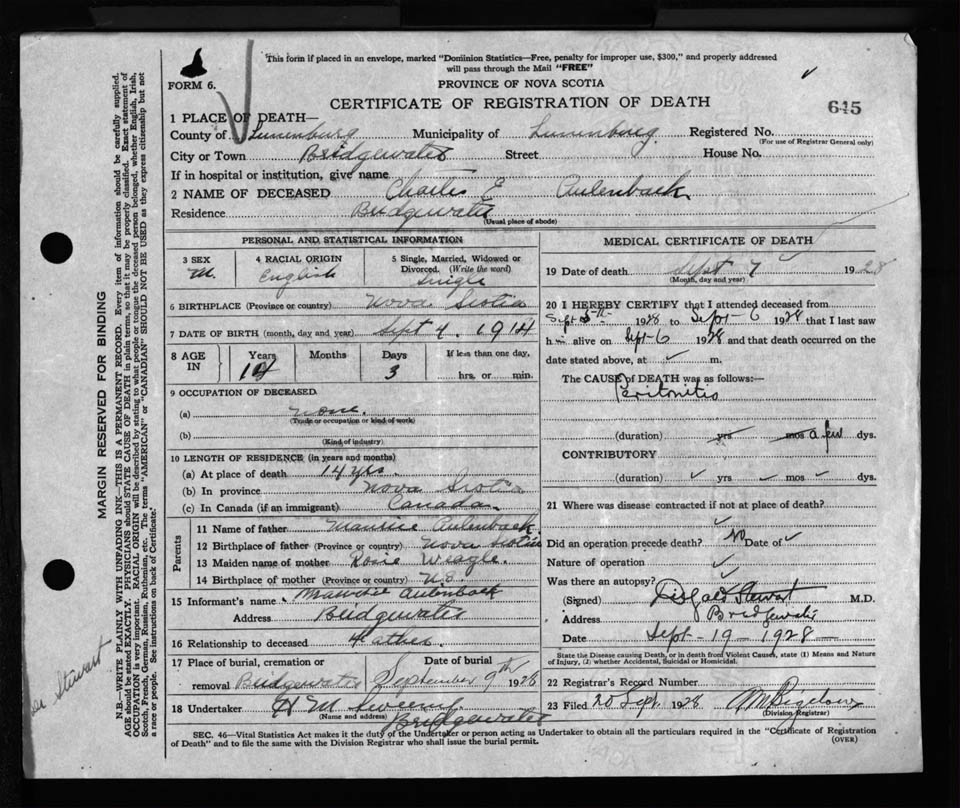 This form if placed in an envelope, marked "Dominion Statistics—Free, penalty for improper use, $300," and properly addressed
will pass through the Mail "FREE"
FORM 6.
PROVINCE OF NOVA SCOTIA
CERTIFICATE OF REGISTRATION OF DEATH
645
1 PLACE OF DEATH—
County of Lunenburg Municipality of Lunenburg Registered No.
(For use of Registrar General only)
City or Town Bridgewater Street House No.
If in hospital or institution, give name
2 NAME OF DECEASED Charles E Aulenback
Residence Bridgewater
(Usual place of abode)
PERSONAL AND STATISTICAL INFORMATION
3 SEX M. 4 RACIAL ORIGIN English 5 Single, Married, Widowed or Divorced. (Write the word) Single
6 BIRTHPLACE (Province or country) Nova Scotia
7 DATE OF BIRTH (month, day and year) Sept 4. 1914
8 AGE IN Years 14 Months Days 3 If less than one day, hrs. or min.
9 OCCUPATION OF DECEASED
(a) none.
(Trade or occupation or kind of work)
(b)
(Kind of industry)
10 LENGTH OF RESIDENCE (in years and months)
(a) At place of death 14 yrs.
(b) In province Nova Scotia
(c) In Canada (if an immigrant) Canada.
Parents
11 Name of father Aulenback
12 Birthplace of father (Province or country) Nova Scotia
13 Maiden name of mother Rosie Weagle.
14 Birthplace of mother (Province or country) N.S.
15 Informant's name Aulenback
Address Bridgewater
16 Relationship to deceased Father
17 Place of burial, cremation or removal Bridgewater Date of burial September 9th 1928
18 Undertaker H M Sweeny
(Name and address) Bridgewater
MEDICAL CERTIFICATE OF DEATH
19 Date of death Sept 7 1928
(Month, day and year)
20 I HEREBY CERTIFY that I attended deceased from
Sept 5th 1928 to Sept-6 1928 that I last saw
him alive on Sept-6 1928 and that death occurred on the
date stated above, at m.
The CAUSE of DEATH was as follows:—
Peritonitis
(duration) yrs mos a few dys.
CONTRIBUTORY
(duration) yrs mos dys.
21 Where was disease contracted if not at place of death?
Did an operation precede death? No Date of
Nature of operation
Was there an autopsy?
(Signed) Stewart M.D.
Address Bridgewater
Date Sept-19-1928—
State the Disease causing Death, or in death from Violent Causes, state (1) Means and Nature
of Injury, (2) whether Accidental, Suicidal or Homicidal.
22 Registrar's Record Number
23 Filed 20 Sept. 1928
(Division Registrar)
SEC. 46—Vital Statistics Act makes it the duty of the Undertaker or person acting as Undertaker to obtain all the particulars required in the "Certificate of Registration
of Death" and to file the same with the Division Registrar who shall issue the burial permit.
(OVER)
MARGIN RESERVED FOR BINDING
N.B.—WRITE PLAINLY WITH UNFADING INK—THIS IS A PERMANENT RECORD. Every item of information should be carefully supplied.
AGE should be stated EXACTLY. PHYSICIANS should STATE CAUSE OF DEATH in plain terms, so that it may be properly classified. Exact statement of
OCCUPATION is very important. RACIAL ORIGIN will be described by stating to what people or tongue the deceased person belonged, whether English, Irish,
Scotch, French, German, Russian, Ruthenian, etc. The terms "AMERICAN" or "CANADIAN" SHOULD NOT BE USED as they express citizenship but not
a race or people. See instructions on back of Certificate.
Stewart